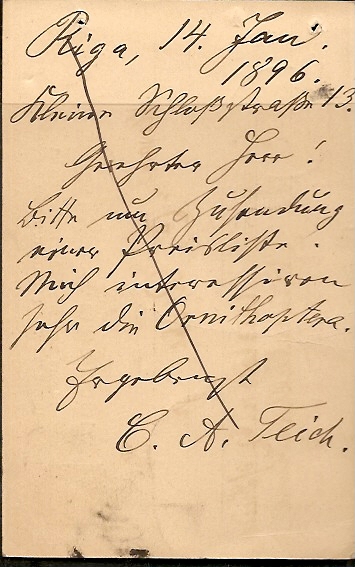 Riga, 14. Jan.
1896.
Kleine Schloßstraße 13.
Geehrter Herr!
Bitte um Zusendung
einer Preisliste.
Mich interessiren
sehr die Ornithoptera.
Ergebenst
C. A. Teich.